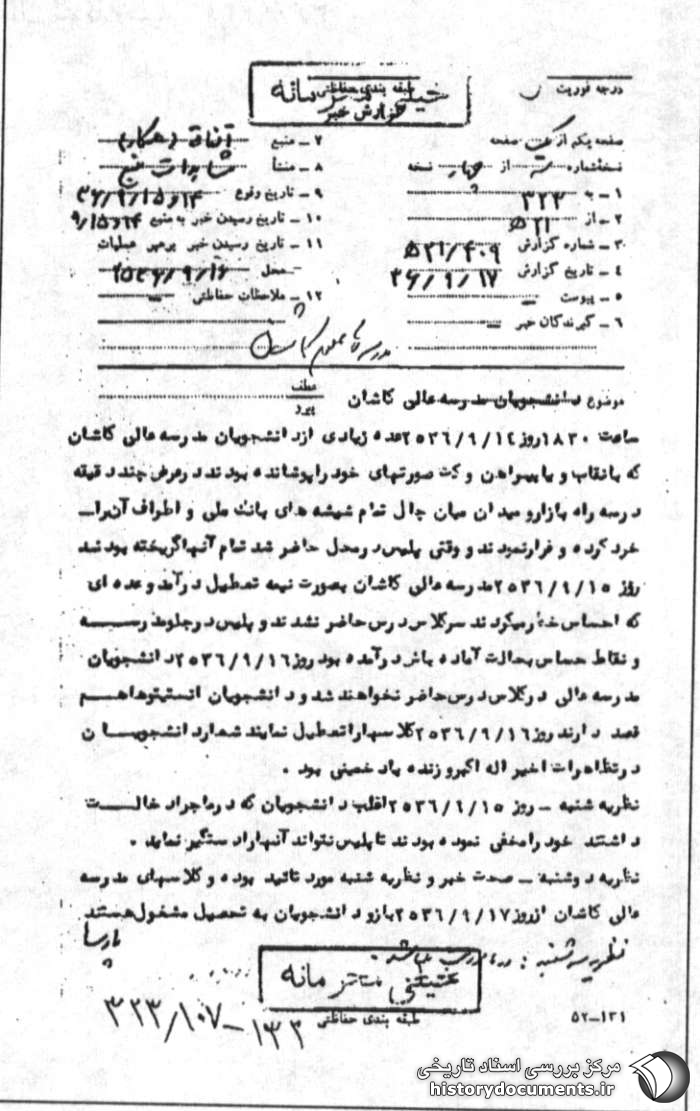 درجه فوریت
طبقه بندی حفاظتی
خیلی محرمانه
گزارش خبر
صفحه یکم از یک صفحه
نسخه شماره از چهار نسخه
۱ – به ۳۲۳
۲ – از ۵۲۱
۳ – شماره گزارش ۵۲۱/۴۰۹
۴ – تاریخ گزارش ۳۶/۹/۱۷
۵ – پیوست –
۶ – گیرندگان خبر –
۷ – منبع (همکار)
۸ – منشأ مشاهدات منبع
۹ – تاریخ وقوع ۱۴و۱۵/۹/۳۶
۱۰ – تاریخ رسیدن خبر به منبع ۱۴و۱۵/۹
۱۱ – تاریخ رسیدن خبر برهبر عملیات
محل ۲۵۳۶/۹/۱۶
۱۲ – ملاحظات حفاظتی –
مدرسه عالی علوم کاشان
موضوع دانشجویان مدرسه عالی کاشان
عطف
پیرو
ساعت ۱۸۳۰روز ۲۵۳۶/۹/۱۴عده زیادی ازدانشجویان مدرسه عالی کاشان
که بانقاب و باپیراهن وکت صورتهای خود راپوشانده بودند درعرض چند دقیقه
درسه راه بازارو میدان میان چال تمام شیشه های بانک ملی و اطراف آن را
خرد کرده و فرارنمودند و وقتی پلیس درمحل حاضر شد تمام آنهاگریخته بودند
روز ۲۵۳۶/۹/۱۵مدرسه عالی کاشان بصورت نیمه تعطیل درآمد وعده ای
که احساس خطرمیکردند سرکلاس درس حاضر نشدند و پلیس درجلومدرسه
و نقاط حساس بحالت آماده باش درآمده بود روز ۲۵۳۶/۹/۱۶دانشجویان
مدرسه عالی درکلاس درس حاضر نخواهند شد و دانشجویان انستیتوهاهم
قصد دارند روز ۲۵۳۶/۹/۱۶کلاسهاراتعطیل نمایند شعاردانشجویان
درتظاهرات اخیر اله اکبرو زنده باد خمینی بود .
نظریه شنبه – روز ۲۵۳۶/۹/۱۵اغلب دانشجویان که درماجرا دخالت
داشتند خود رامخفی نموده بودند تاپلیس نتواند آنهارا دستگیر نماید .
نظریه دوشنبه – صحت خبر و نظریه شنبه مورد تائید بوده و کلاسهای مدرسه
عالی کاشان ازروز ۲۵۳۶/۹/۱۷بازو دانشجویان به تحصیل مشغول هستند
پارسا
نظریه سه شنبه :
خیلی محرمانه
طبقه بندی حفاظتی
۵۲–۱۳۱
۳۲۳/۱۰۷–۱۳۲
مرکز بررسی اسناد تاریخی
historydocuments.ir